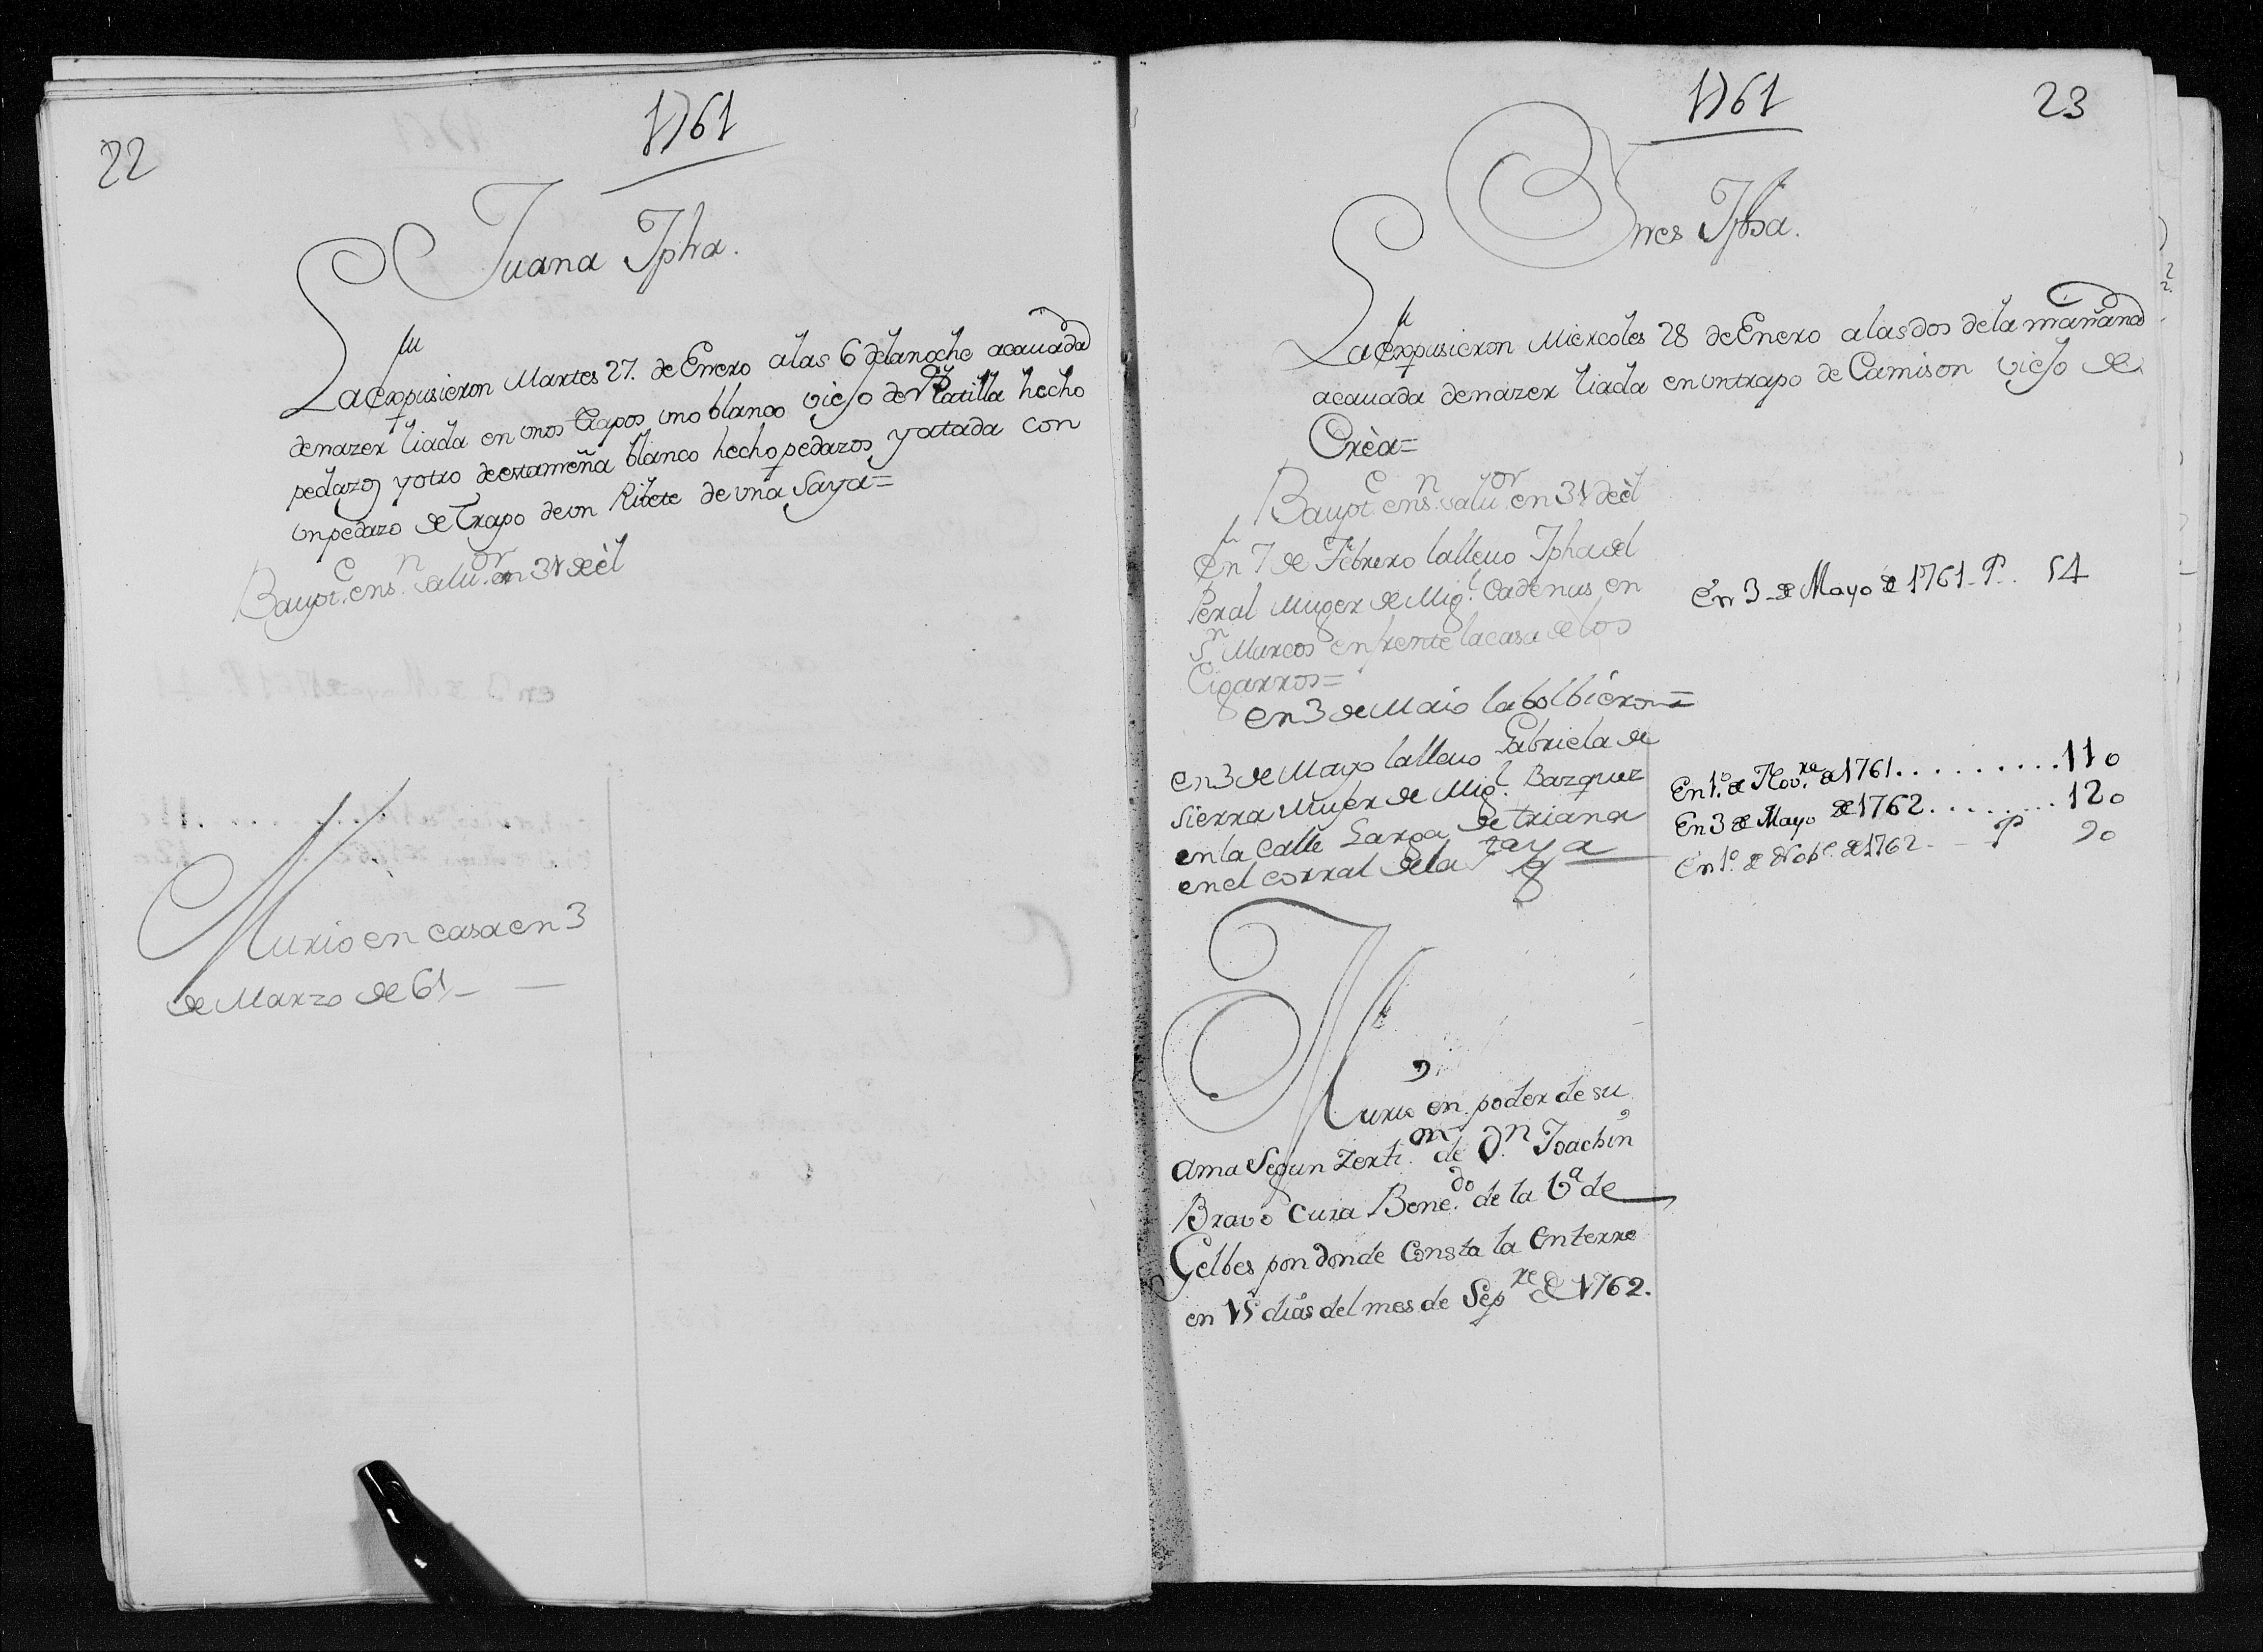 22
1761
Juana Jpha.
La expusieron Martes 27. de Enero a las 6 de la noche acauada
de nazer liada en unos trapos uno blanco viejo de Platilla hecho
pedazos y otro de estameña blanco hecho pedazos y atada con
un pedazo de Trapo de un Ribete de una Saya=
Baupt.e en S.n Salu.or en 31 de èl
Murio en casa en 3
de Marzo de 61
1761
23
Ynes Jpha.
La expusieron Miercoles 28 de Enero a las dos de la mañana
acauada de nazer liada en un trapo de Camison viejo de
Crèa=
Baupt.e en S.n Salu.or en 31 de èl
en 7 de Febrero la lleuo Jpha del
Peral Muger de Mig.l Cadenas en
S.n Marcos enfrente la casa de los
Cigarros=
en 3 de Mayo de 1761 P. 54
en 3 de Maio la bolbieron=
en 3 de Mayo la lleuo Gabriela de
Sierra Mujer de Mig.l Bazquez
en la Calle Larga de triana
en el corral de la
En 1.º de Nov.re de 1761.........110
En 3 de Mayo de 1762........120
en 1.º de Nob.e de 1762 P 90
Murio en poder de su
Ama Segun Zerti.on de D.n Joachin
Bravo Cura Bene.do de la V.a de
Gelbes por donde Consta la Enterre
en 15 dias del mes de Sep.re de 1762.